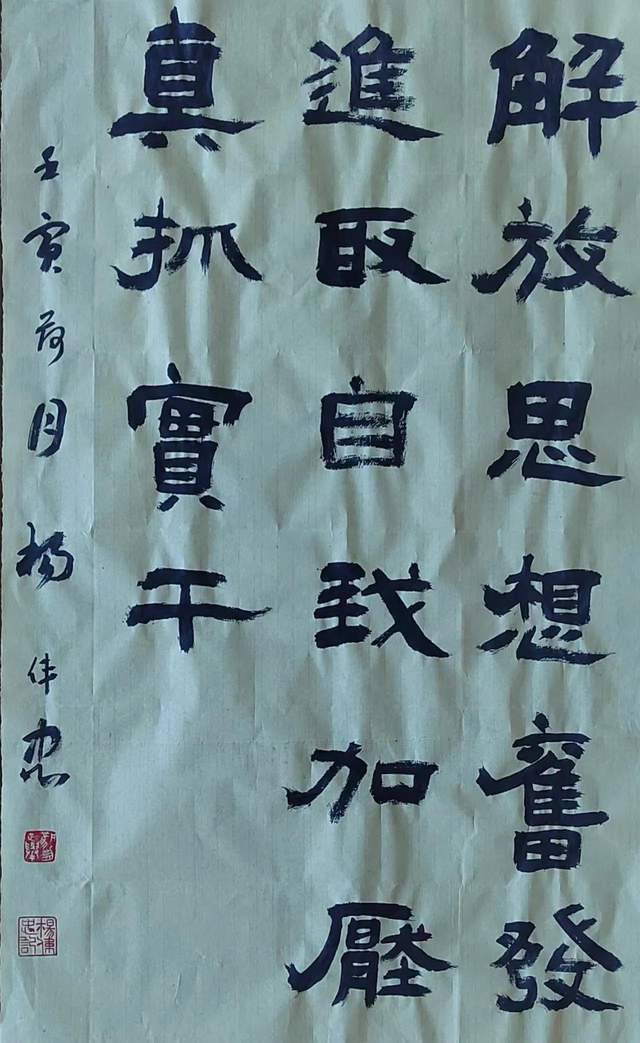 解放思想奮發
進取自我加壓
真抓實干
壬寅荷月楊伟忠